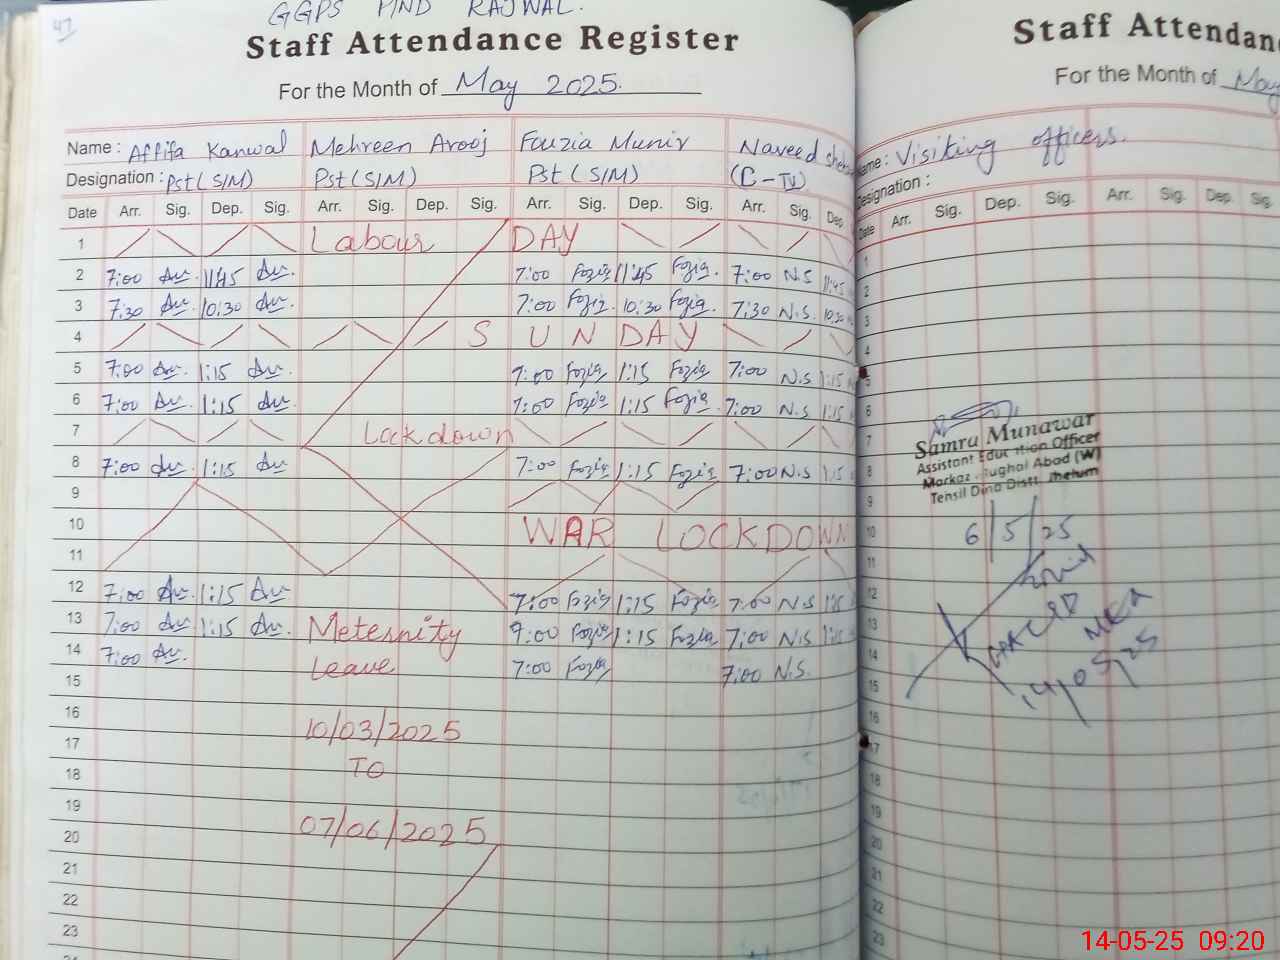 47
GGPS PIND RAJWAL.
Staff Attendance Register
For the Month of May 2025.
Name : Affifa Kanwal Mehreen Arooj Fouzia Munir Naveed
Designation : Pst (S/M) Pst (S/M) Pst (S/M) (C-IV)
Date Arr. Sig. Dep. Sig. Arr. Sig. Dep. Sig. Arr. Sig. Dep. Sig. Arr. Sig. Dep
1 Labour DAY
2 7:00 11:45 7:00 Fozia 11:45 Fozia. 7:00 N.S 11:45
3 7:30 10:30 7:00 Fozia 10:30 Fozia. 7:30 N.S. 10:30
4 S UNDAY
5 7:00 1:15 7:00 Fozia 1:15 Fozia 7:00 N.S 1:15
6 7:00 1:15 7:00 Fozia 1:15 Fozia. 7:00 N.S 1:15
7 Lockdown
8 7:00 1:15 7:00 Fozia 1:15 Fozia 7:00 N.S 1:15
9
10 WAR LOCKDOWN
11
12 7:00 1:15 7:00 Fozia 1:15 Fozia 7:00 N.S 1:15
13 7:00 1:15 Meternity 7:00 Fozia 1:15 Fozia 7:00 N.S 1:15
14 7:00 Leave 7:00 Fozia 7:00 N.S.
15
16 10/03/2025
17
18 TO
19
20 07/06/2025
21
22
23
Staff Attendan
For the Month of May
Name : Visiting officers.
Designation :
Date Arr. Sig. Dep. Sig. Arr. Sig. Dep. Sig.
1
2
3
4
5
6
7
8
9
10
11
12
13
14
15
16
17
18
19
20
21
22
23
Samra Munawar
Assistant Education Officer
Markaz Mughal Abad (W)
Tehsil Dina Distt. Jhelum
6/5/25
14/05/25
14-05-25 09:20